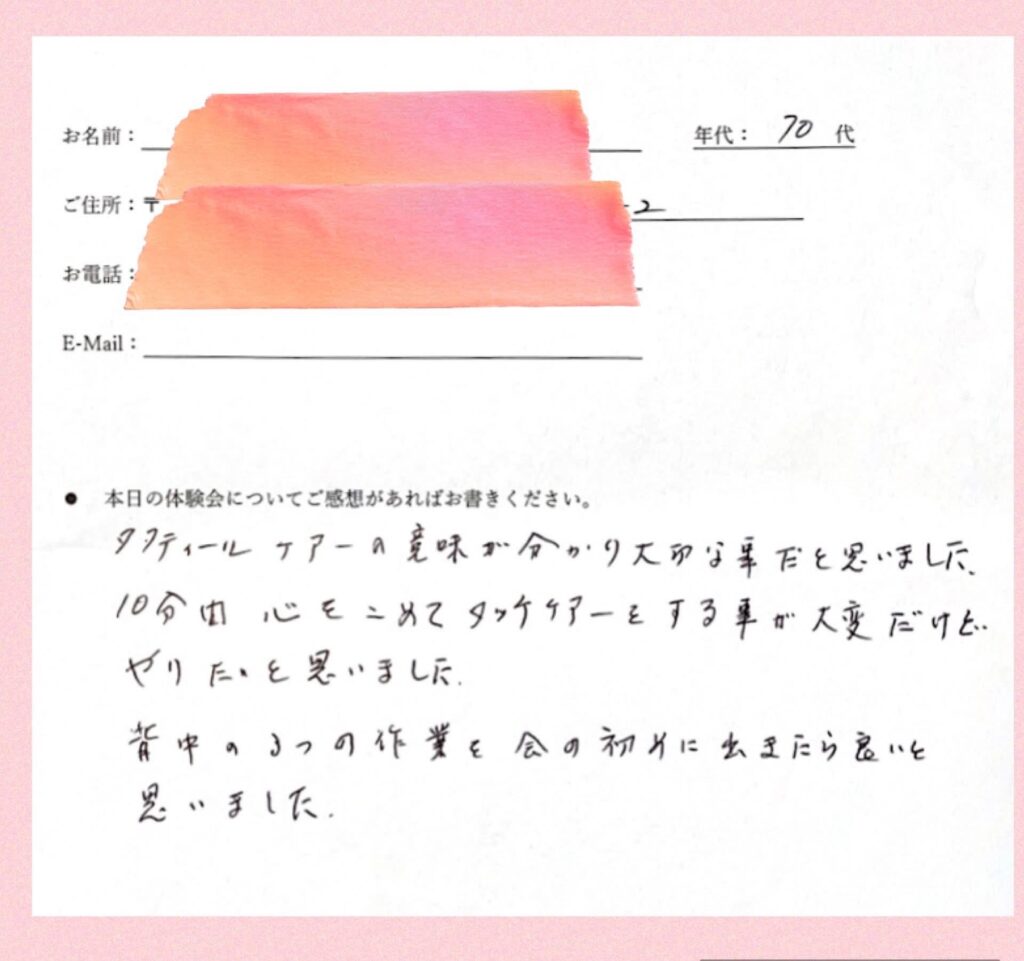 お名前：
年代： 70 代
ご住所：〒 -2
お電話：
E-Mail：
● 本日の体験会についてご感想があればお書きください。
タクティール ケアーの意味が分かり大切な事だと思いました.
10分間 心をこめてタッチケアーをする事が大変だけど
やりたいと思いました.
背中の3つの作業を会の初めに出来たら良いと
思いました.